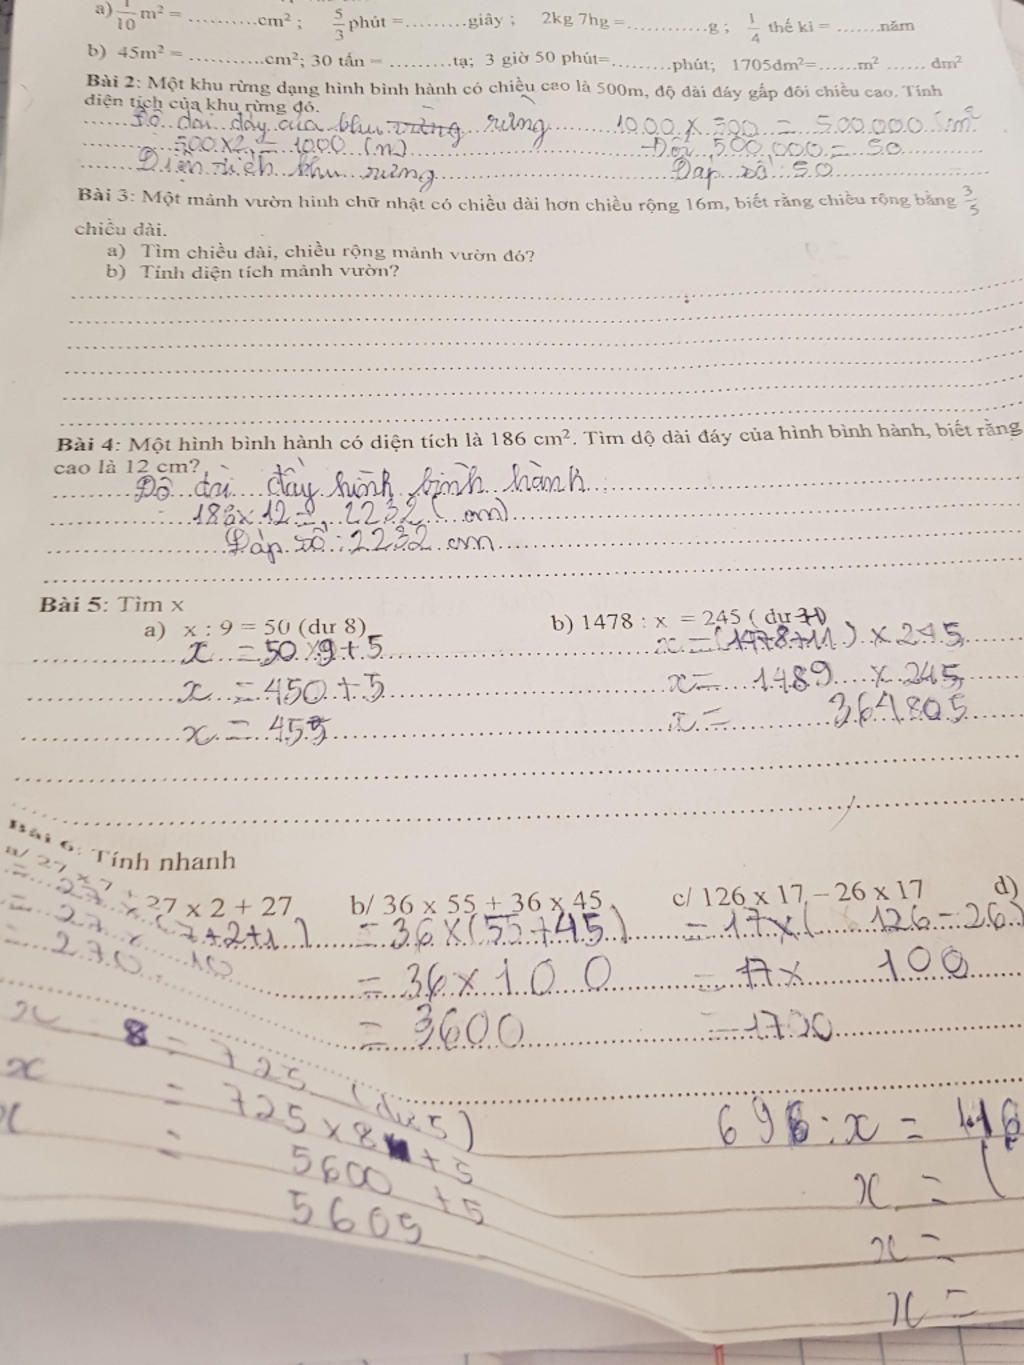 a) 1/10 m² = ............cm² ; 5/3 phút =..........giây ; 2kg 7hg =.............g ; 1/4 thế kỉ = .......năm
b) 45m² = .............cm²; 30 tấn = ...........tạ; 3 giờ 50 phút=..........phút; 1705dm²=......m² ...... dm²
Bài 2: Một khu rừng dạng hình bình hành có chiều cao là 500m, độ dài đáy gấp đôi chiều cao. Tính
diện tích của khu rừng đó.
Độ dài đáy của khu rừng rừng 1000 x 500 = 500.000 (m²
500 x 2 = 1000 (m) Đổi 500,000 = 50
Diện tích khu rừng Đáp số : 50
Bài 3: Một mảnh vườn hình chữ nhật có chiều dài hơn chiều rộng 16m, biết rằng chiều rộng bằng 3/5
chiều dài.
a) Tìm chiều dài, chiều rộng mảnh vườn đó?
b) Tính diện tích mảnh vườn?
Bài 4: Một hình bình hành có diện tích là 186 cm². Tìm độ dài đáy của hình bình hành, biết rằng
cao là 12 cm?
Độ dài đáy hình bình hành
186 x 12 = 2232 ( cm)
Đáp số : 2232 cm
Bài 5: Tìm x
a) x : 9 = 50 (dư 8) b) 1478 : x = 245 ( dư
x = 50 x 9 + 5 x = (1478 + 11 ) x 245
x = 450 + 5 x = 1489 x 245
x = 455 x = 364805
Bài 6: Tính nhanh
a/ 27 x 7 + 27 x 2 + 27 b/ 36 x 55 + 36 x 45 c/ 126 x 17 – 26 x 17 d)
= 27 x (7+2+1 ) = 36 x (55+45 ) = 17 x ( 126 - 26 )
= 27 x 10 = 36 x 100 = 17 x 100
= 270 = 3600 = 1700
x 8 = 725 (dư 5 )
x = 725 x 8 + 5 696 : x = 116
x = 5600 + 5 x = (
5605 x =
x =